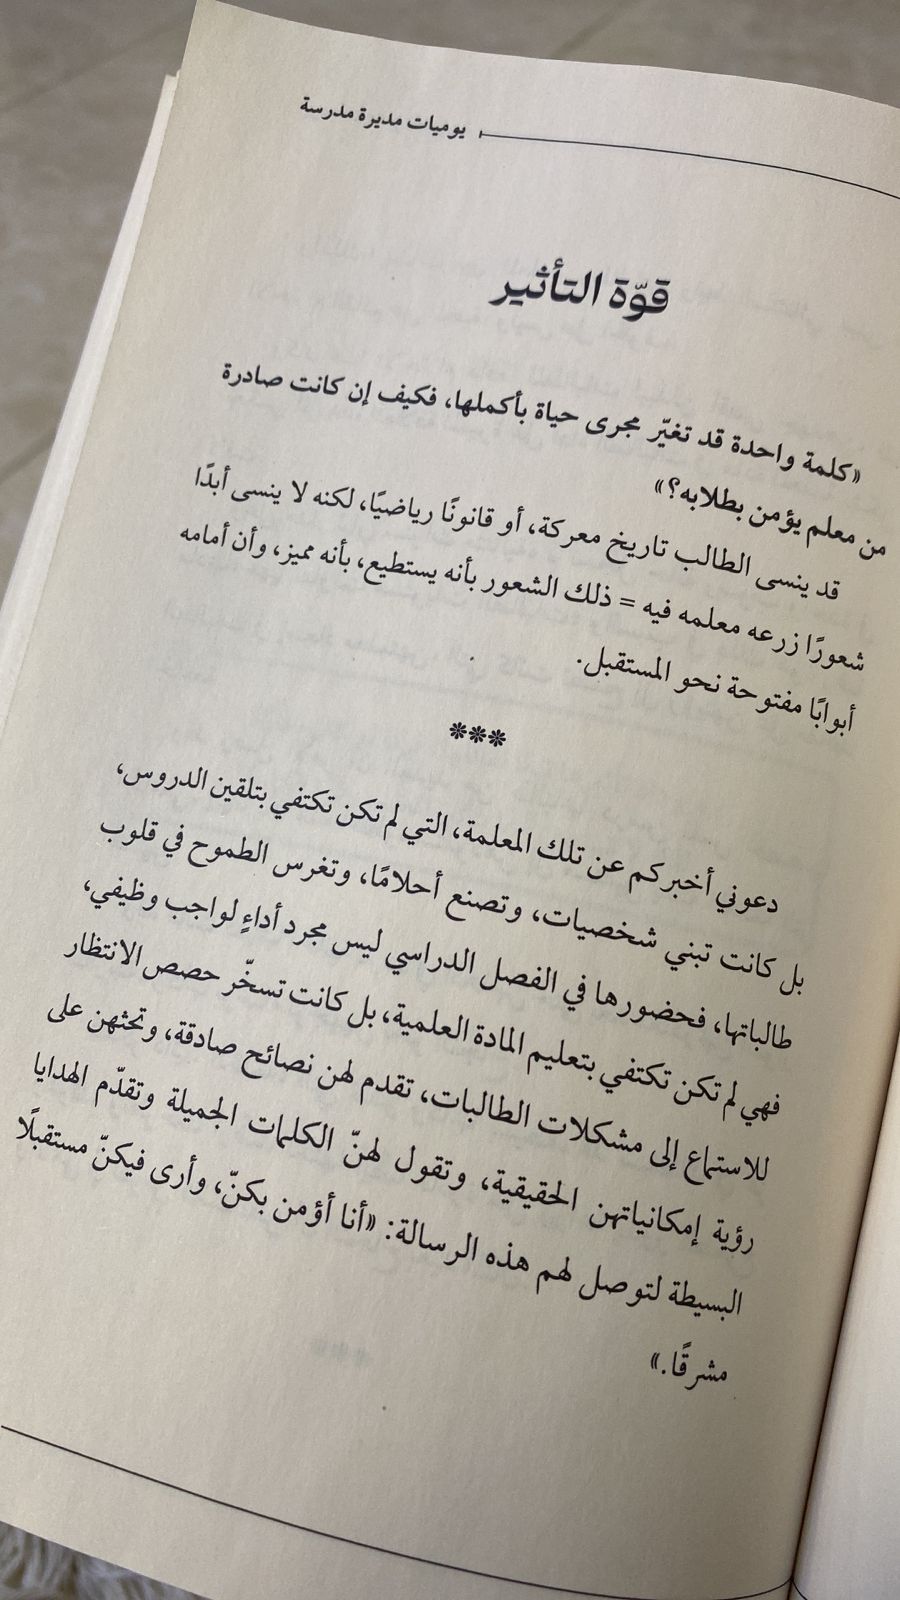 يوميات مديرة مدرسة
قوّة التأثير
«كلمة واحدة قد تغيّر مجرى حياة بأكملها، فكيف إن كانت صادرة
من معلم يؤمن بطلابه؟»
قد ينسى الطالب تاريخ معركة، أو قانونًا رياضيًا، لكنه لا ينسى أبدًا
شعورًا زرعه معلمه فيه = ذلك الشعور بأنه يستطيع، بأنه مميز، وأن أمامه
أبوابًا مفتوحة نحو المستقبل.
***
دعوني أخبركم عن تلك المعلمة، التي لم تكن تكتفي بتلقين الدروس،
بل كانت تبني شخصيات، وتصنع أحلامًا، وتغرس الطموح في قلوب
طالباتها، فحضورها في الفصل الدراسي ليس مجرد أداءٍ لواجب وظيفي،
فهي لم تكن تكتفي بتعليم المادة العلمية، بل كانت تسخّر حصص الانتظار
للاستماع إلى مشكلات الطالبات، تقدم لهن نصائح صادقة، وتحثهن على
رؤية إمكانياتهن الحقيقية، وتقول لهنّ الكلمات الجميلة وتقدّم الهدايا
البسيطة لتوصل لهم هذه الرسالة: «أنا أؤمن بكنّ، وأرى فيكنّ مستقبلًا
مشرقًا.»